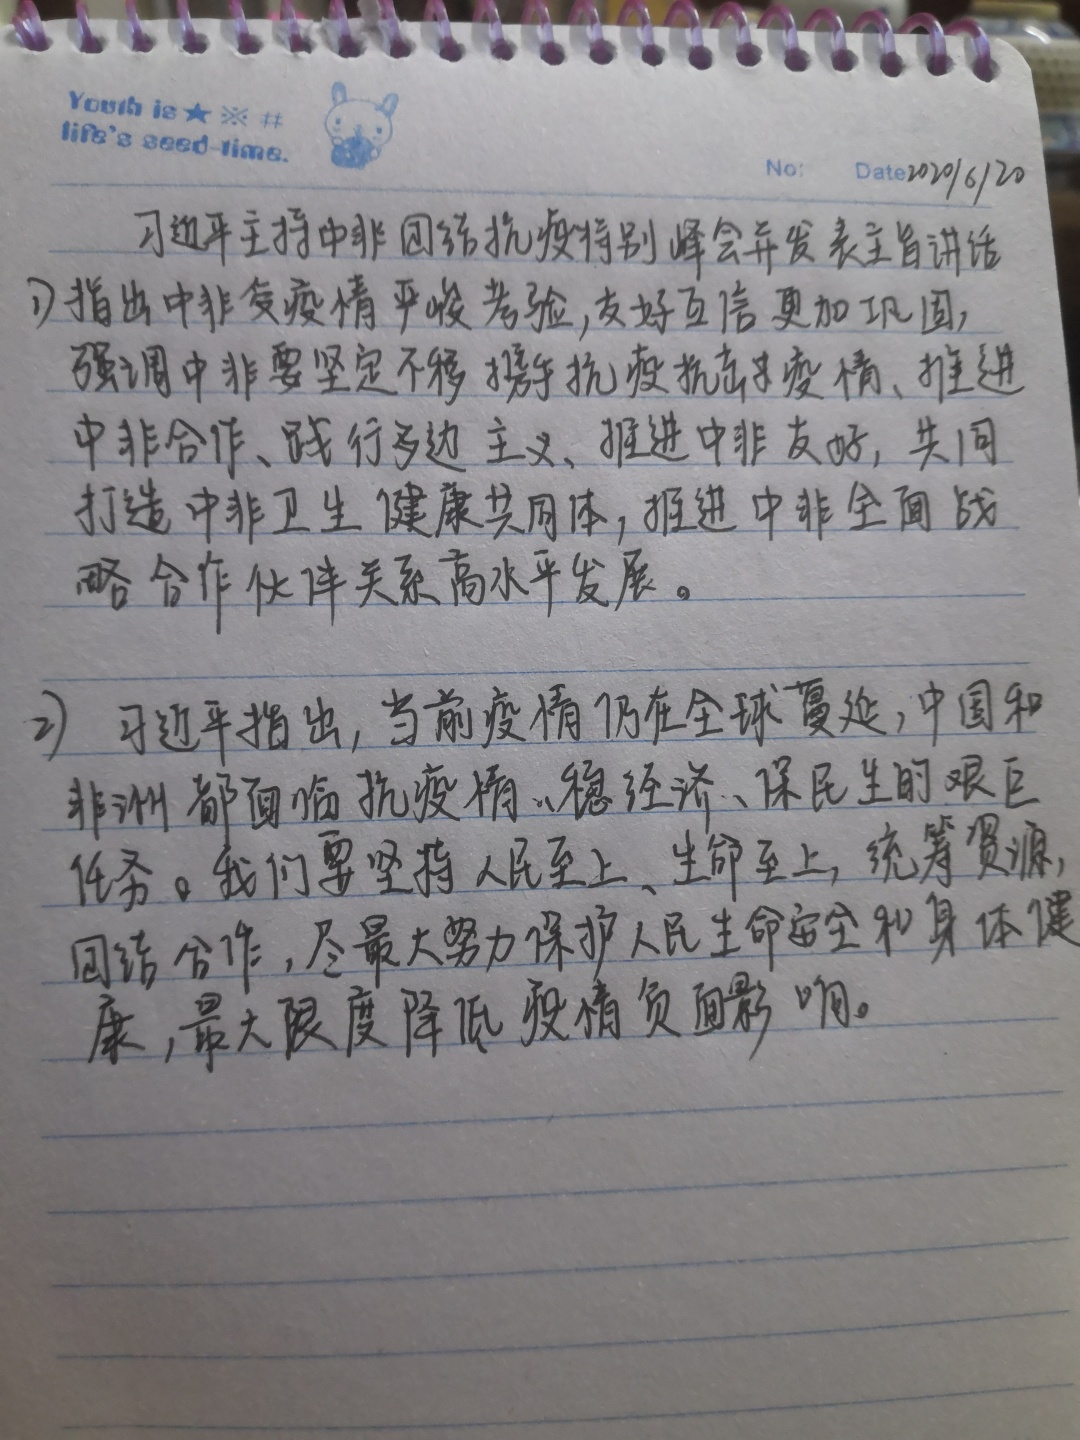 Youth is ★ ※ #
life's seed-time.
No: Date 2020/6/20
习近平主持中非团结抗疫特别峰会并发表主旨讲话
1) 指出中非友疫情严峻考验,友好互信更加巩固,
强调中非要坚定不移携手抗疫抗击疫情、推进
中非合作、践行多边主义、推进中非友好,共同
打造中非卫生健康共同体,推进中非全面战
略合作伙伴关系高水平发展。
2) 习近平指出,当前疫情仍在全球蔓延,中国和
非洲都面临抗疫情、稳经济、保民生的艰巨
任务。我们要坚持人民至上、生命至上,统筹资源,
团结合作,尽最大努力保护人民生命安全和身体健
康,最大限度降低疫情负面影响。